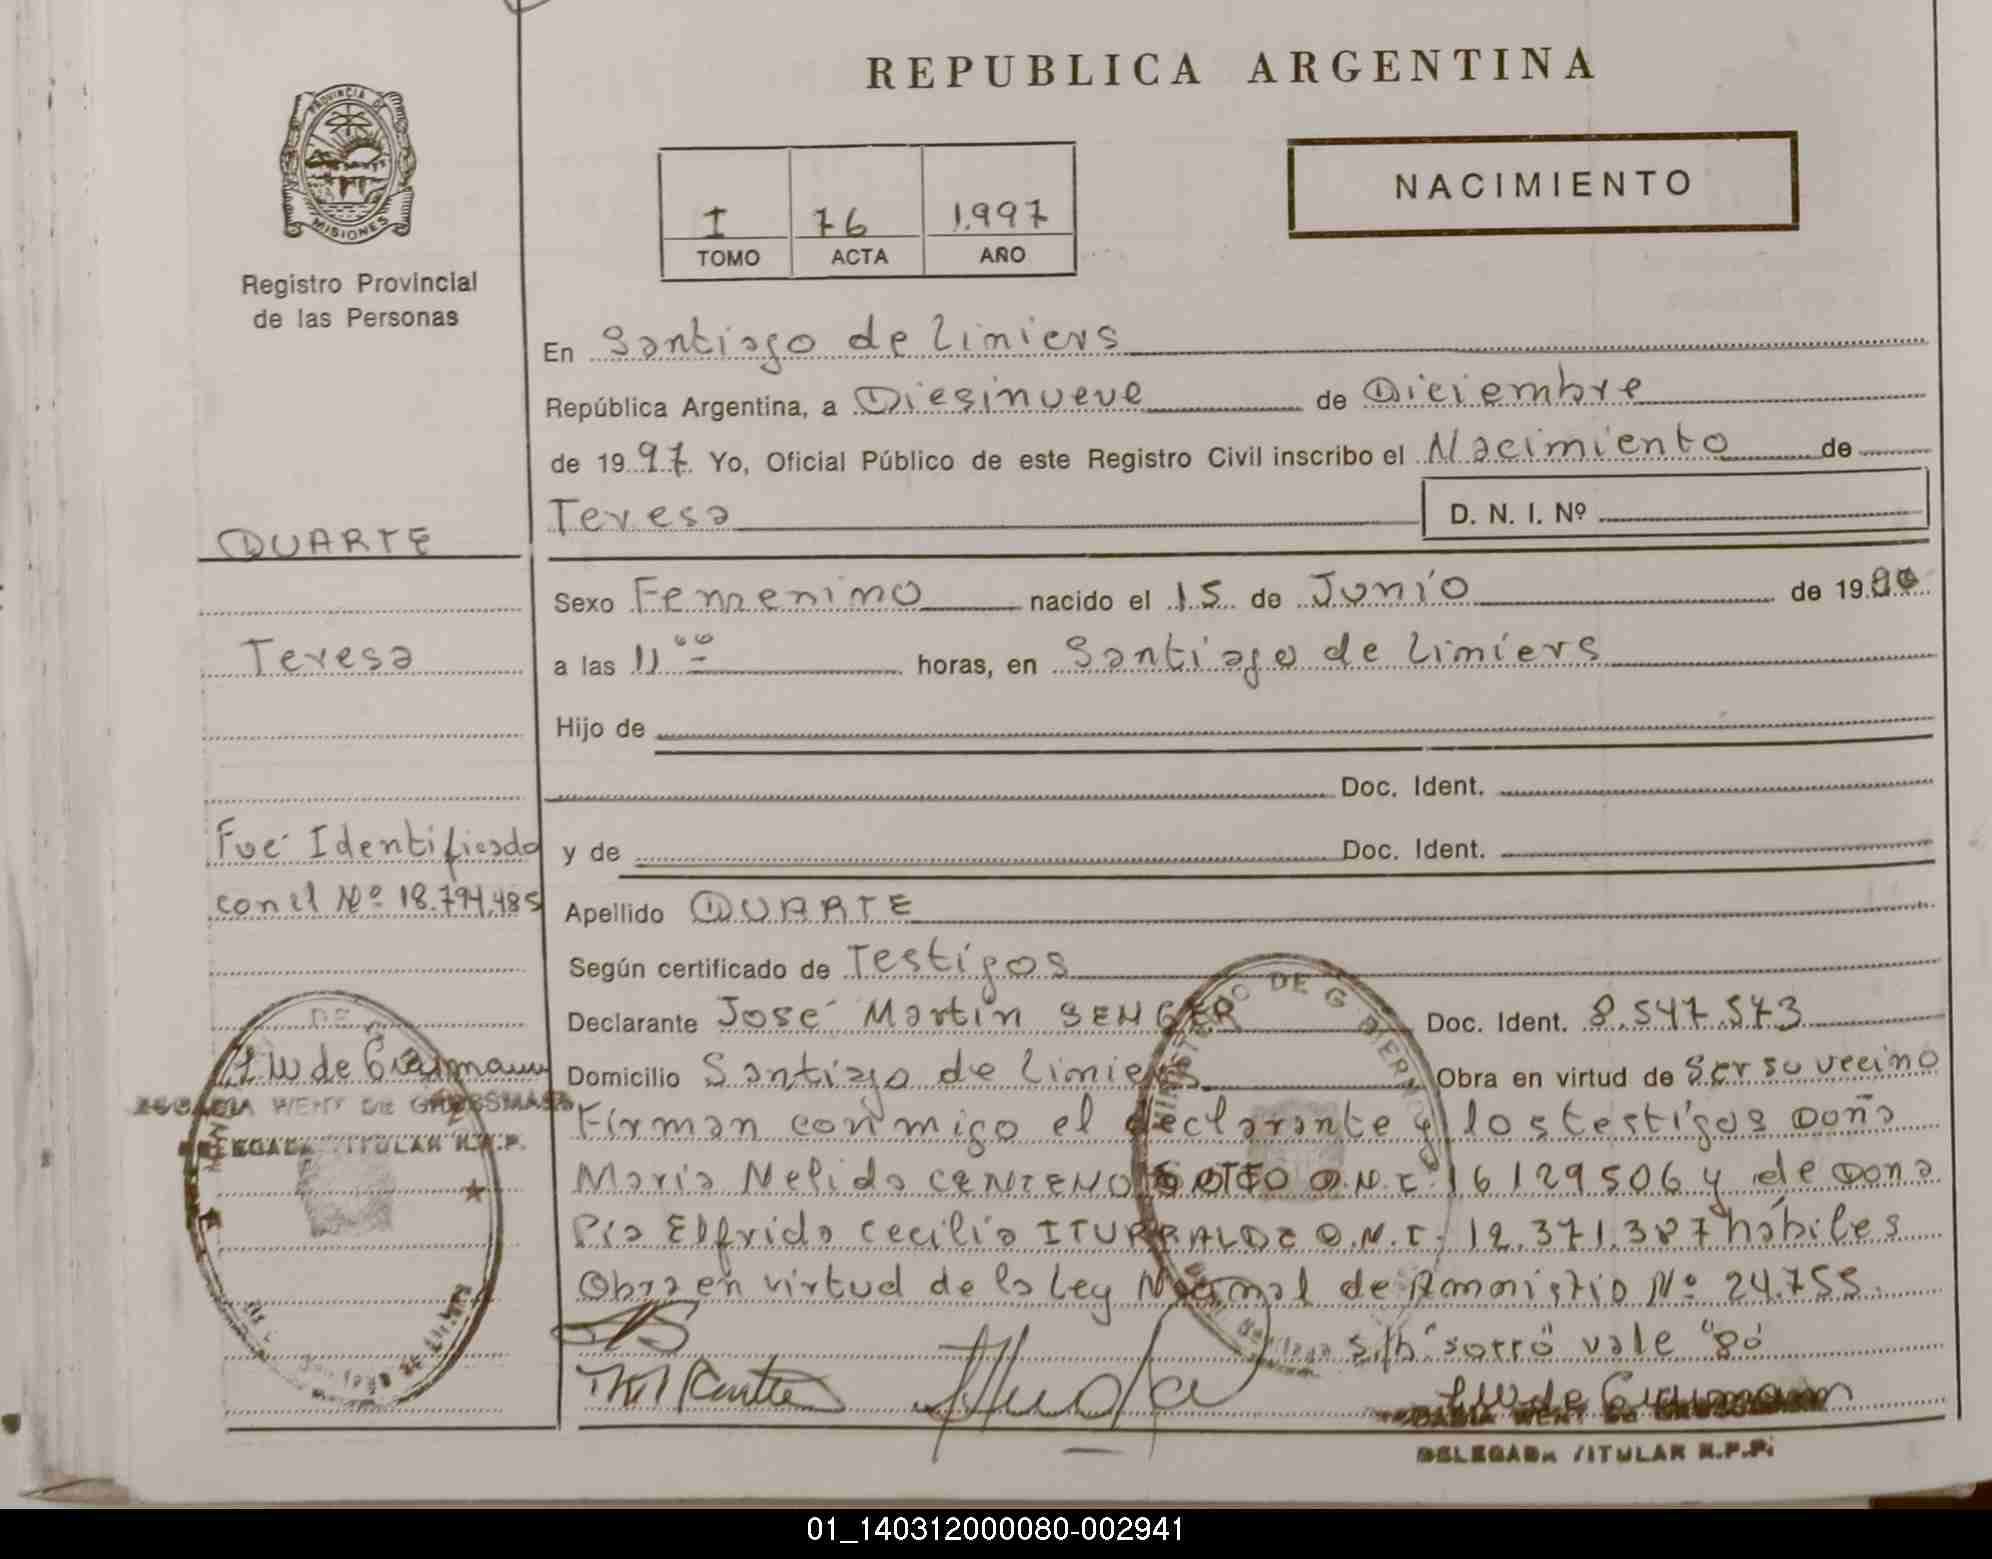 REPUBLICA ARGENTINA
PROVINCIA DE
MISIONES
Registro Provincial
de las Personas
I 76 1.997
TOMO ACTA AÑO
NACIMIENTO
En Santiago de Liniers
República Argentina, a Diesinueve de Diciembre
de 1997. Yo, Oficial Público de este Registro Civil inscribo el Nacimiento de
Teresa D. N. I. Nº
DUARTE
Teresa
Fué Identificada
con el Nº 18.794.485
Sexo Femenino nacido el 15 de Junio de 1980
a las 11 00 horas, en Santiago de Liniers
Hijo de
Doc. Ident.
y de Doc. Ident.
Apellido DUARTE
Según certificado de Testigos
Declarante José Martin SENGER Doc. Ident. 8.547.573
Domicilio Santiago de Liniers Obra en virtud de Ser su vecino
Firman conmigo el declarante y los testigos Doña
Maria Nelida CENTENO SOTTO D.N.I. 16129506 y de Doña
Pia Elfrida Cecilia ITURRALDE D.N.I. 12.371.387 hábiles
Obra en virtud de la Ley Nacional de Amnistia Nº 24.755.
S/b "sotto" vale "80
MINISTERIO DE GOBIERNO
WENT DE GROSSMANN
DELEGADA TITULAR R.P.P.
WENT DE
DELEGADA TITULAR R.P.P.
01_140312000080-002941